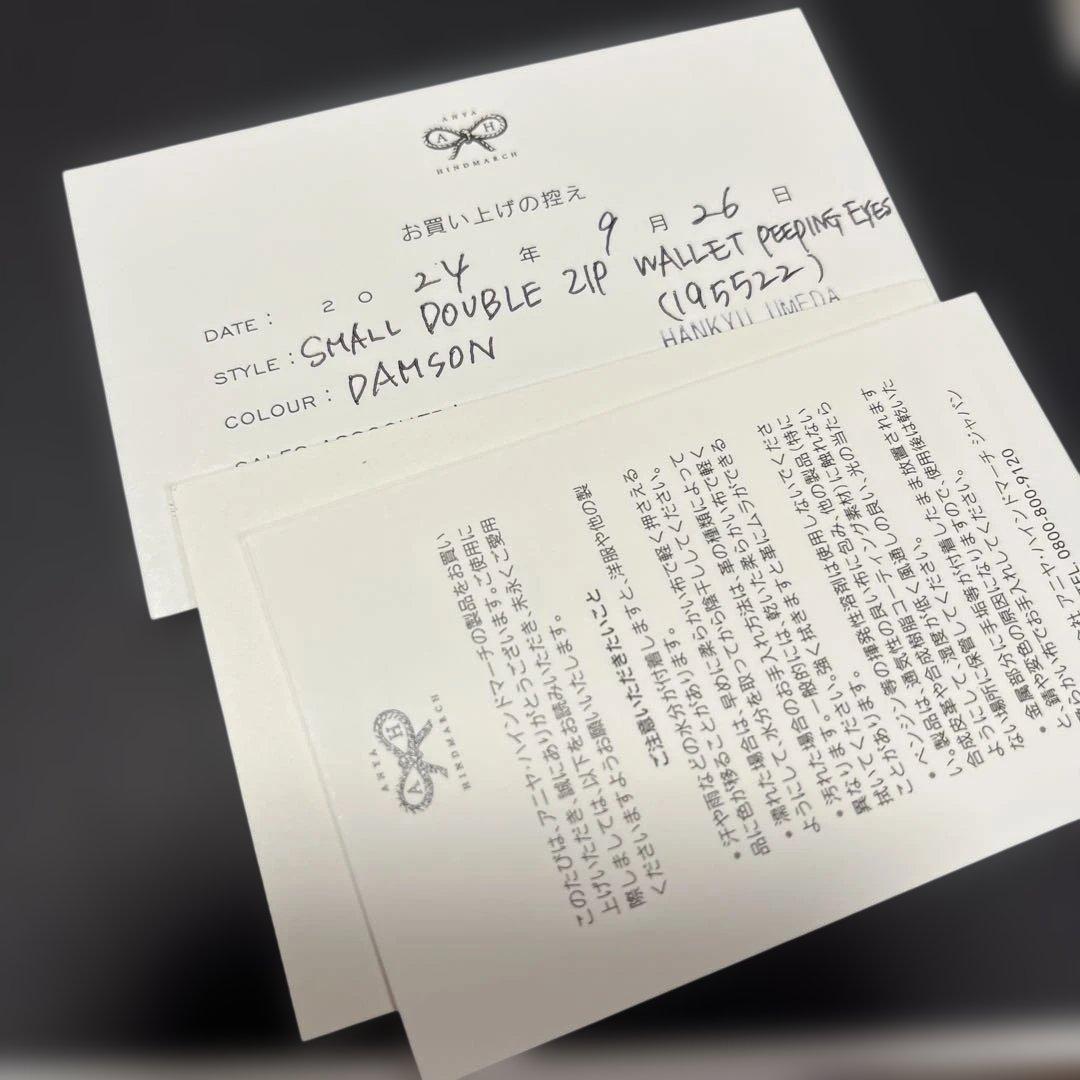 ANYA
A H
HINDMARCH
お買い上げの控え
DATE： 20 24 年 9 月 26 日
STYLE：SMALL DOUBLE ZIP WALLET PEEPING EYES
(195522)
COLOUR：DAMSON
HANKYU UMEDA
ANYA
A H
HINDMARCH
このたびは、アニヤ・ハインドマーチの製品をお買い
上げいただき、誠にありがとうございます。ご使用に
際しましては、以下をお読みいただき末永くご愛用
くださいますようお願いいたします。
ご注意いただきたいこと
• 汗や雨などの水分が付着しますと、洋服や他の製
品に色が移ることがあります。
• 濡れた場合は、早めに柔らかい布で軽く押さえる
ようにして、水分を取ってから陰干ししてください。
• 汚れた場合のお手入れ方法は、革の種類によって
異なります。一般的には、乾いた柔らかい布で軽く
拭いてください。強く拭きますと革にムラができる
ことがあります。
• ベンジン等の揮発性溶剤は使用しないでくださ
い。
• 製品は、通気性の良い布に包み、他の製品(特に
合成皮革や合成樹脂コーティング素材)に触れない
ようにして、湿度が低く、風通しの良い、光の当たら
ない場所に保管してください。
• 金属部分に手垢等が付着したまま放置されます
と、錆や変色の原因になりますので、使用後は乾いた
アニヤ・ハインドマーチ ジャパン
TEL 0800-800-9120